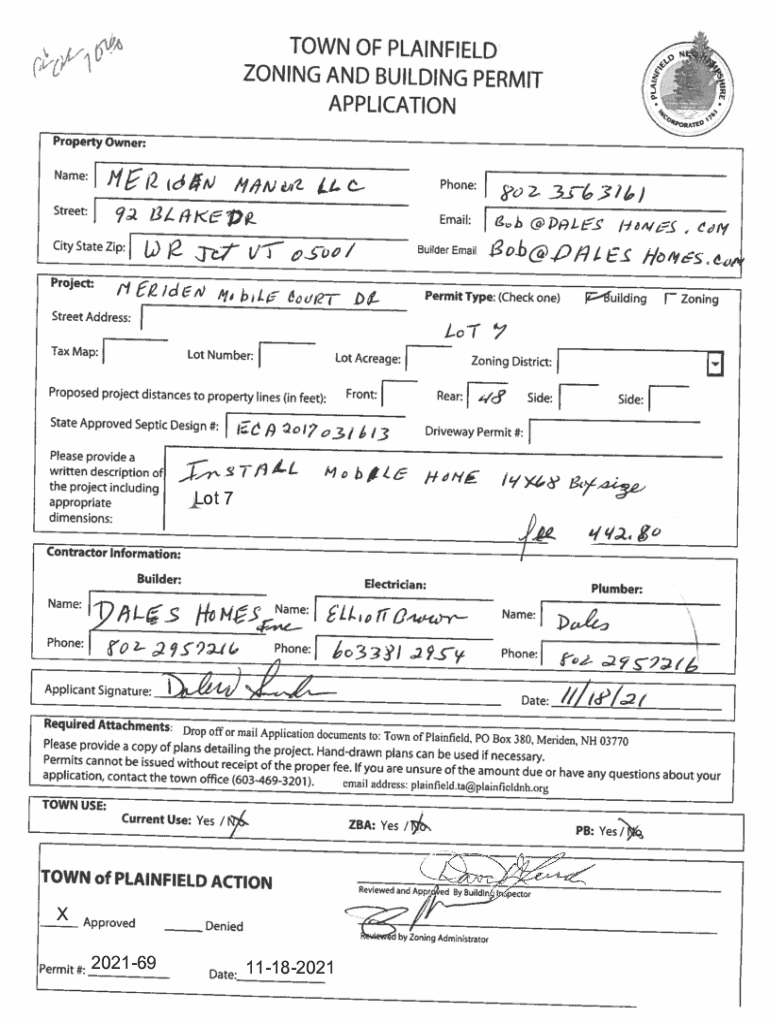 TOWN OF PLAINFIELD
ZONING AND BUILDING PERMIT
APPLICATION
PLAINFIELD NEW HAMPSHIRE
INCORPORATED 1761
Property Owner:
Name: MERIDEN MANOR LLC Phone: 802 3563161
Street: 92 BLAKE DR Email: Bob@DALES HOMES.COM
City State Zip: WR Jct VT 05001 Builder Email Bob@DALES HOMES.COM
Project: MERIDEN MOBILE COURT DR Permit Type: (Check one) Building Zoning
Street Address: LOT 7
Tax Map: Lot Number: Lot Acreage: Zoning District:
Proposed project distances to property lines (in feet): Front: Rear: 48 Side: Side:
State Approved Septic Design #: ECA2017031613 Driveway Permit #:
Please provide a
written description of
the project including
appropriate
dimensions:
INSTALL MOBILE HOME 14X68 Box size
Lot 7
fee 442.80
Contractor Information:
Builder: Electrician: Plumber:
Name: DALES HOMES Inc Name: Elliott Brown Name: Dales
Phone: 802 2957216 Phone: 603381 2954 Phone: 802 2957216
Applicant Signature: Date: 11/18/21
Required Attachments: Drop off or mail Application documents to: Town of Plainfield, PO Box 380, Meriden, NH 03770
Please provide a copy of plans detailing the project. Hand-drawn plans can be used if necessary.
Permits cannot be issued without receipt of the proper fee. If you are unsure of the amount due or have any questions about your
application, contact the town office (603-469-3201). email address: plainfield.ta@plainfieldnh.org
TOWN USE:
Current Use: Yes / No ZBA: Yes / No PB: Yes / No
TOWN of PLAINFIELD ACTION
Reviewed and Approved By Building Inspector
X Approved Denied
Reviewed by Zoning Administrator
Permit #: 2021-69 Date: 11-18-2021